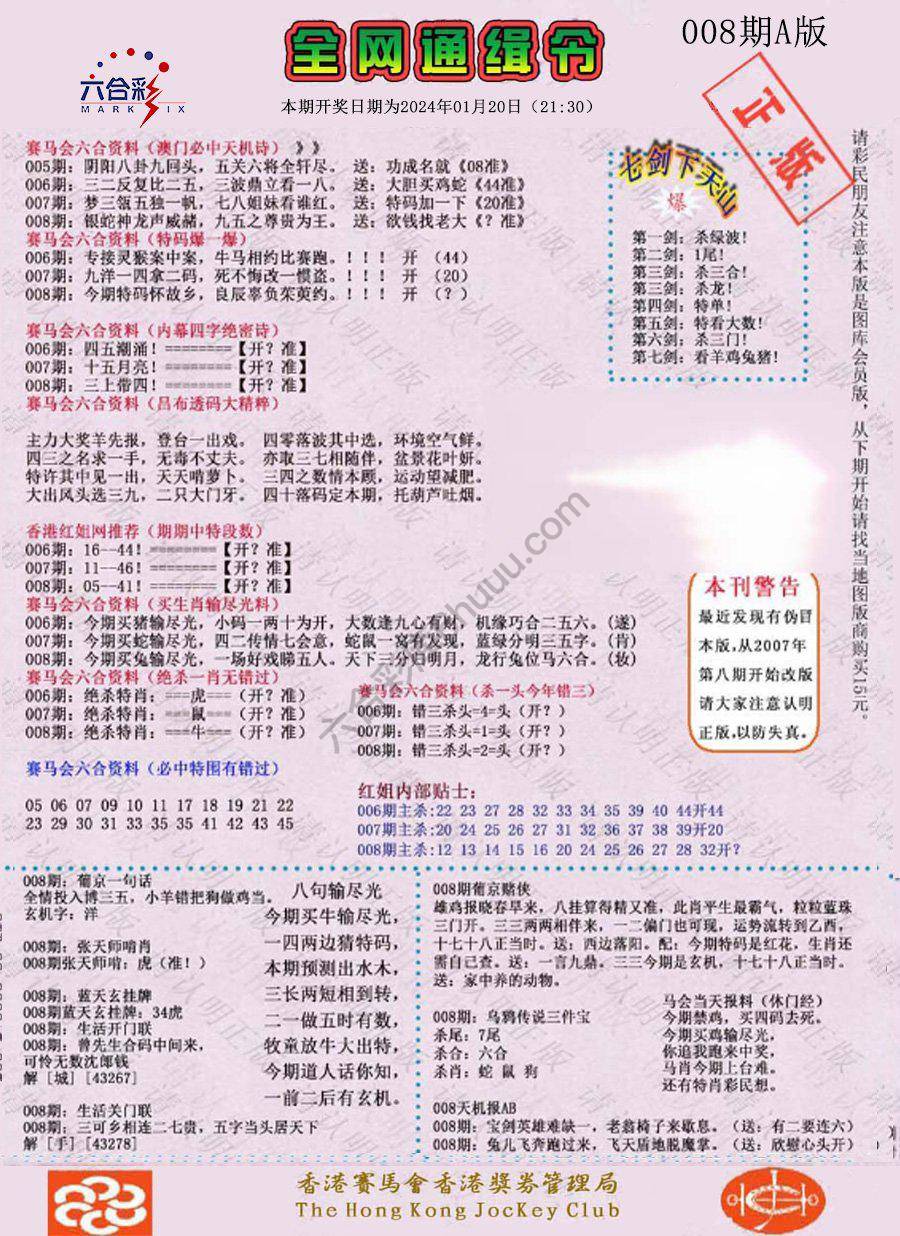 008期A版
全网通缉令
六合彩
MARK SIX
本期开奖日期为2024年01月20日（21:30）
正版
赛马会六合资料（澳门必中天机诗）》》
005期：阴阳八卦九回头，五关六将全轩尽。 送：功成名就《08准》
006期：三二反复比二五，三波鼎立看一八。 送：大胆买鸡蛇《44准》
007期：梦三瓴五独一帆，七八姐妹看谁红。 送：特码加一下《20准》
008期：银蛇神龙声威赫，九五之尊贵为王。 送：欲钱找老大《？准》
赛马会六合资料（特码爆一爆）
006期：专接灵猴案中案，牛马相约比赛跑。！！！ 开 （44）
007期：九洋一四拿二码，死不悔改一惯盗。！！！ 开 （20）
008期：今期特码怀故乡，良辰辜负茱萸约。！！！ 开 （？）
赛马会六合资料（内幕四字绝密诗）
006期：四五潮涌！========【开？准】
007期：十五月亮！========【开？准】
008期：三上带四！========【开？准】
赛马会六合资料（吕布透码大精粹）
主力大奖羊先报，登台一出戏。 四零落波其中选，环境空气鲜。
四三之名求一手，无毒不丈夫。 亦取三七相随伴，盆景花叶妍。
特许其中见一出，天天啃萝卜。 三四之数情本顾，运动望减肥。
大出风头选三九，二只大门牙。 四十落码定本期，托葫芦吐烟。
香港红姐网推荐（期期中特段数）
006期：16--44！========【开？准】
007期：11--46！========【开？准】
008期：05--41！========【开？准】
赛马会六合资料（买生肖输尽光料）
006期：今期买猪输尽光，小码一两十为开，大数逢九心有财，机缘巧合二五六。(遂)
007期：今期买蛇输尽光，四二传情七会意，蛇鼠一窝有发现，蓝绿分明三五字。(肯)
008期：今期买兔输尽光，一场好戏睇五人。天下三分归明月，龙行兔位马六合。(妆)
赛马会六合资料（绝杀一肖无错过）
006期：绝杀特肖：===虎===（开？准）
007期：绝杀特肖：===鼠===（开？准）
008期：绝杀特肖：===牛===（开？准）
赛马会六合资料（杀一头今年错三）
006期：错三杀头=4=头（开？）
007期：错三杀头=1=头（开？）
008期：错三杀头=2=头（开？）
赛马会六合资料（必中特围有错过）
05 06 07 09 10 11 17 18 19 21 22
23 29 30 31 33 35 35 41 42 43 45
红姐内部贴士：
006期主杀:22 23 27 28 32 33 34 35 39 40 44开44
007期主杀:20 24 25 26 27 31 32 36 37 38 39开20
008期主杀:12 13 14 15 16 20 24 25 26 27 28 32开？
七剑下天山
爆
第一剑：杀绿波！
第二剑：1尾！
第三剑：杀三合！
第三剑：杀龙！
第四剑：特单！
第五剑：特看大数！
第六剑：杀三门！
第七剑：看羊鸡兔猪！
请彩民朋友注意本版是图库会员版，从下期开始请找当地图版商购买15元。
本刊警告
最近发现有伪冒
本版，从2007年
第八期开始改版
请大家注意认明
正版，以防失真。
008期：葡京一句话
全情投入博三五，小羊错把狗做鸡当。
玄机字：洋
008期：张天师啃肖
008期张天师啃：虎（准！）
008期：蓝天玄挂牌
008期蓝天玄挂牌：34虎
008期：生活开门联
008期：曾先生合码中间来，
可怜无数沈郎钱
解［城］[43267]
008期：生活关门联
008期：三可乡相连二七贵，五字当头居天下
解［手］[43278]
八句输尽光
今期买牛输尽光，
一四两边猜特码，
本期预测出水木，
三长两短相到转，
二一做五时有数，
牧童放牛大出特，
今期道人话你知，
一前二后有玄机。
008期葡京赌侠
雄鸡报晓春早来，八挂算得精又准，此肖平生最霸气，粒粒蓝珠
三门开。三三两两相伴来，一二偏门也可现，运势流转到乙酉，
十七十八正当时。送：西边落阳。配：今期特码是红花，生肖还
需自己查。送：一言九鼎。三三今期是玄机，十七十八正当时。
送：家中养的动物。
008期：乌鸦传说三件宝
杀尾：7尾
杀合：六合
杀肖：蛇 鼠 狗
马会当天报料（休门经）
今期禁鸡，买四码去死。
今期买鸡输尽光，
你追我跑来中奖，
马肖今期上台难。
还有特肖彩民想。
008天机报AB
008期：宝剑英雄难缺一，老翁椅子来歇息。（送：有二要连六）
008期：兔儿飞奔跑过来，飞天盾地脱魔掌。（送：欣慰心头开）
香港賽馬會香港獎券管理局
The Hong Kong JocKey Club